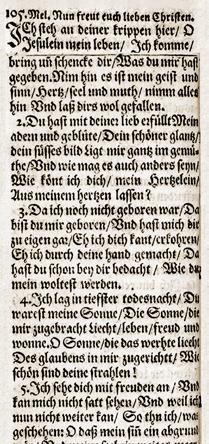 105. Mel. Nun freut euch lieben Christen.
ICh steh an deiner krippen hier/ O
Jesulein mein leben/ Ich komme/
bring uñ schencke dir/ Was du mir hast
gegeben. Nim hin es ist mein geist und
sinn/ Hertz/ seel und muth/ nimm alles
hin Vnd laß dirs wol gefallen.
2. Du hast mit deiner lieb erfüllt Mein
adern und geblüte/ Dein schöner glantz/
dein süsses bild Ligt mir gantz im gemü-
the/ Vnd wie mag es auch anders seyn/
Wie könt ich dich/ mein Hertzelein/
Aus meinem hertzen lassen?
3. Da ich noch nicht geboren war/ Da
bist du mir geboren/ Vnd hast mich dir
zu eigen gar/ Eh ich dich kant/ erkohren/
Eh ich durch deine hand gemacht/ Da
hast du schon bey dir bedacht/ Wie du
mein woltest werden.
4. Ich lag in tieffster todesnacht/ Du
warest meine Sonne/ Die Sonne/ die
mir zugebracht Liecht/ leben/ freud und
wonne. O Sonne/ die das werthe liecht
Des glaubens in mir zugericht/ Wie
schön sind deine strahlen!
5. Ich sehe dich mit freuden an/ Vnd
kan mich nicht satt sehen/ Vnd weil ich
nun nicht weiter kan/ So thu ich/ was
geschehen: O daß mein sin̄ ein abgrund